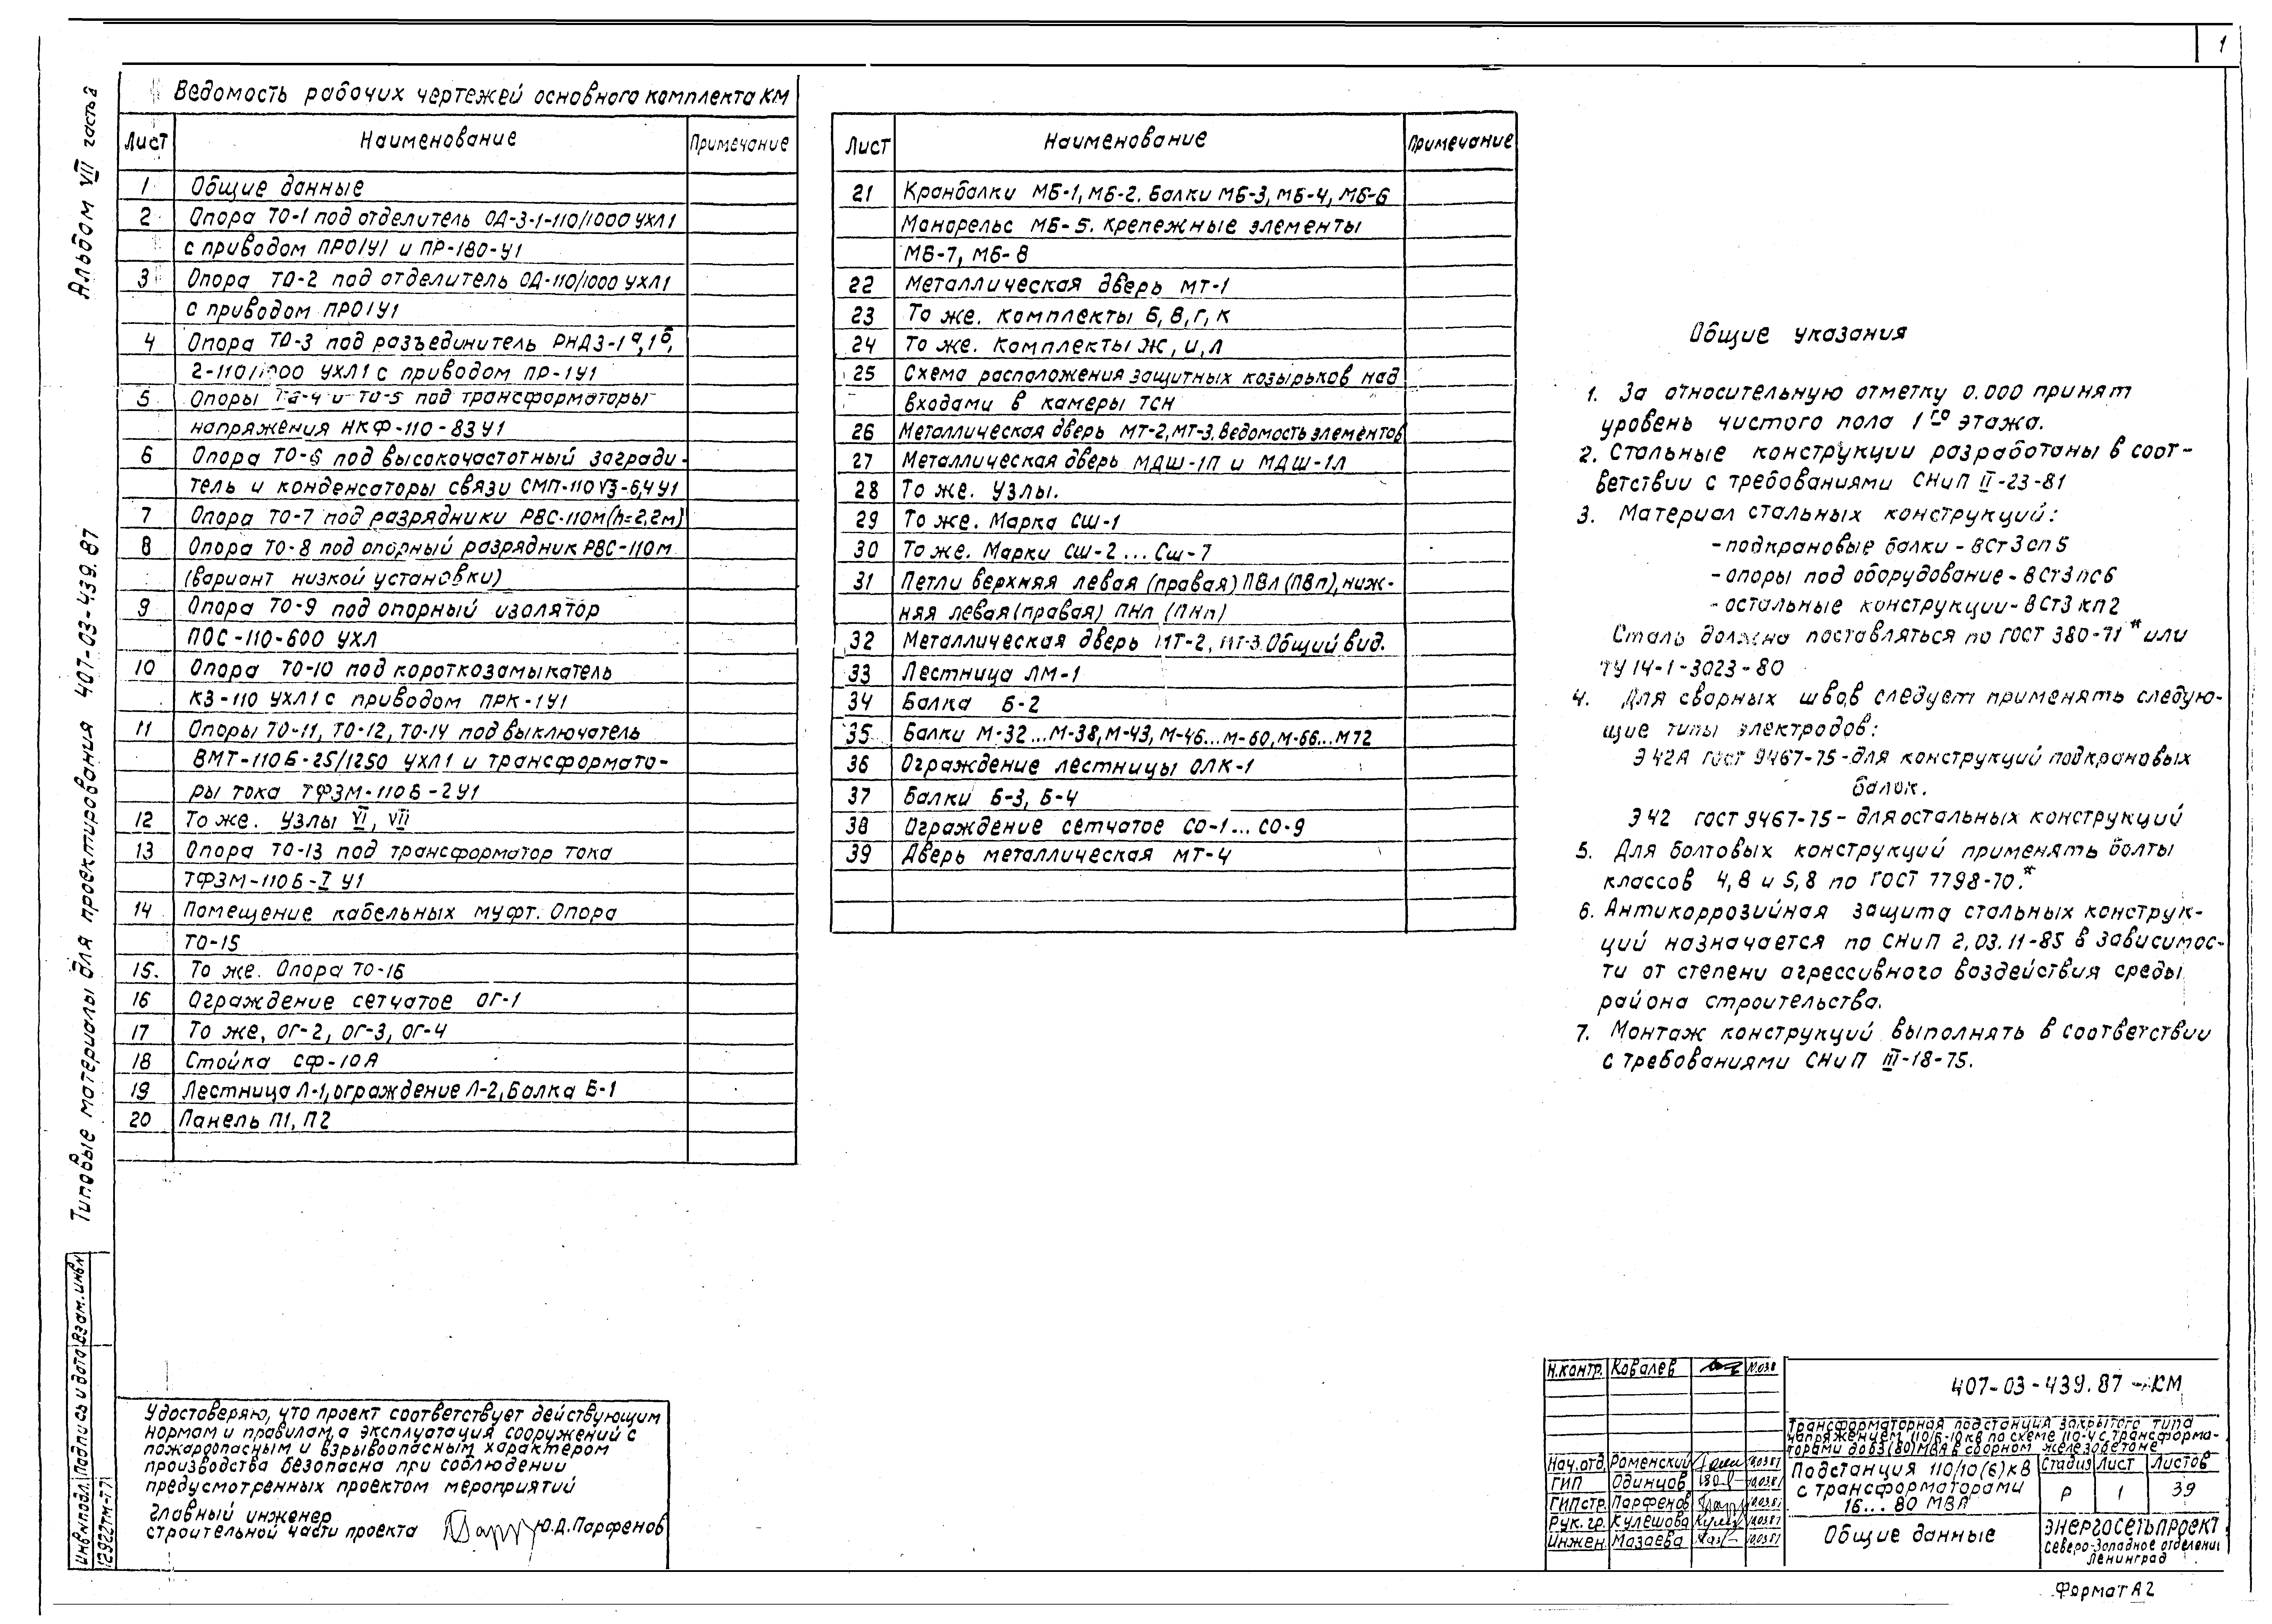 1
Альбом VII часть 2
Типовые материалы для проектирования 407-03-439.87
Ведомость рабочих чертежей основного комплекта КМ
Лист Наименование Примечание
1 Общие данные
2 Опора ТО-1 под отделитель ОД-3-1-110/1000 УХЛ1
с приводом ПРО1У1 и ПР-180-У1
3 Опора ТО-2 под отделитель ОД-110/1000 УХЛ1
с приводом ПРО1У1
4 Опора ТО-3 под разъединитель РНДЗ-1а,1б,
2-110/1000 УХЛ1 с приводом ПР-1У1
5 Опоры ТО-4 и ТО-5 под трансформаторы
напряжения НКФ-110-83У1
6 Опора ТО-6 под высокочастотный загради-
тель и конденсаторы связи СМП-110√3-6,4У1
7 Опора ТО-7 под разрядники РВС-110м(h=2,2м)
8 Опора ТО-8 под опорный разрядник РВС-110м
(вариант низкой установки)
9 Опора ТО-9 под опорный изолятор
ПОС-110-600 УХЛ
10 Опора ТО-10 под короткозамыкатель
КЗ-110 УХЛ1 с приводом ПРК-1У1
11 Опоры ТО-11, ТО-12, ТО-14 под выключатель
ВМТ-110Б-25/1250 УХЛ1 и трансформато-
ры тока ТФЗМ-110Б-2У1
12 То же. Узлы VI, VII
13 Опора ТО-13 под трансформатор тока
ТФЗМ-110Б-I У1
14 Помещение кабельных муфт. Опора
ТО-15
15. То же. Опора ТО-16
16 Ограждение сетчатое ОГ-1
17 То же, ОГ-2, ОГ-3, ОГ-4
18 Стойка СФ-10А
19 Лестница Л-1, ограждение Л-2, Балка Б-1
20 Панель П1, П2
Лист Наименование Примечание
21 Кранбалки МБ-1, МБ-2. Балки МБ-3, МБ-4, МБ-6
Монорельс МБ-5. Крепежные элементы
МБ-7, МБ-8
22 Металлическая дверь МТ-1
23 То же. Комплекты Б, В, Г, К
24 То же. Комплекты Ж, И, Л
25 Схема расположения защитных козырьков над
входами в камеры ТСН
26 Металлическая дверь МТ-2, МТ-3. Ведомость элементов
27 Металлическая дверь МДШ-1П и МДШ-1Л
28 То же. Узлы.
29 То же. Марка СШ-1
30 То же. Марки СШ-2...СШ-7
31 Петли верхняя левая (правая) ПВл (ПВп), ниж-
няя левая(правая) ПНл (ПНп)
32 Металлическая дверь МТ-2, МТ-3. Общий вид.
33 Лестница ЛМ-1
34 Балка Б-2
35 Балки М-32...М-38, М-43, М-46...М-60, М-66...М72
36 Ограждение лестницы ОЛК-1
37 Балки Б-3, Б-4
38 Ограждение сетчатое СО-1...СО-9
39 Дверь металлическая МТ-4
Общие указания
1. За относительную отметку 0.000 принят
уровень чистого пола 1го этажа.
2. Стальные конструкции разработаны в соот-
ветствии с требованиями СНиП II-23-81
3. Материал стальных конструкций:
-подкрановые балки - ВСт3сп5
-опоры под оборудование - ВСт3пс6
-остальные конструкции - ВСт3кп2
Сталь должна поставляться по ГОСТ 380-71* или
ТУ 14-1-3023-80
4. Для сварных швов следует применять следую-
щие типы электродов:
Э42А ГОСТ 9467-75-для конструкций подкрановых
балок.
Э42 ГОСТ 9467-75- для остальных конструкций
5. Для болтовых конструкций применять болты
классов 4,8 и 5,8 по ГОСТ 7798-70.*
6. Антикоррозийная защита стальных конструк-
ций назначается по СНиП 2.03.11-85 в зависимос-
ти от степени агрессивного воздействия среды
района строительства.
7. Монтаж конструкций выполнять в соответствии
с требованиями СНиП III-18-75.
Удостоверяю, что проект соответствует действующим
нормам и правилам, а эксплуатация сооружений с
пожароопасным и взрывоопасным характером
производства безопасна при соблюдении
предусмотренных проектом мероприятий
Главный инженер
строительной части проекта Ю.Д.Парфенов
Инв№подл. Подпись и дата Взам.инв№
12922тм-т7
Н.контр. Ковалев
407-03-439.87-КМ
Трансформаторная подстанция закрытого типа
напряжением 110/6-10кв по схеме 110-4 с трансформа-
торами до 63(80)МВА в сборном железобетоне
Нач.отд. Роменский 10.03.87
ГИП Одинцов 10.03.87
ГИПстр. Парфенов 10.03.87
Рук.гр. Кулешова 10.03.87
Инжен. Мазаева 10.03.87
Подстанция 110/10(6)кв
с трансформаторами
16...80 МВА
Стадия Лист Листов
Р 1 39
Общие данные
ЭНЕРГОСЕТЬПРОЕКТ
Северо-Западное отделение
Ленинград
Формат А2